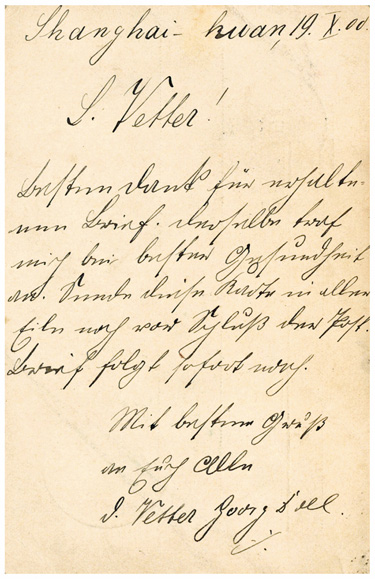 Shanghai-kwan, 19. X. 00.
L. Vetter!
Besten Dank für erhalte-
nen Brief. derselbe traf
mich bei bester Gesundheit
an. Sende diese Karte in aller
Eile noch vor Schluß der Post.
Brief folgt sofort nach.
Mit bestem Gruß
an Euch Alle
d. Vetter Georg